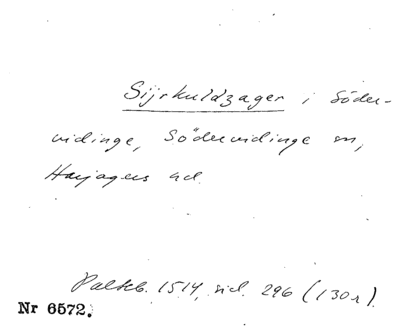 Sijrkuldzager i Söder-
vidinge, Södervidinge sn,
Harjagers hd.
Palteb. 1514, sid. 296 (130r).
Nr 6572.